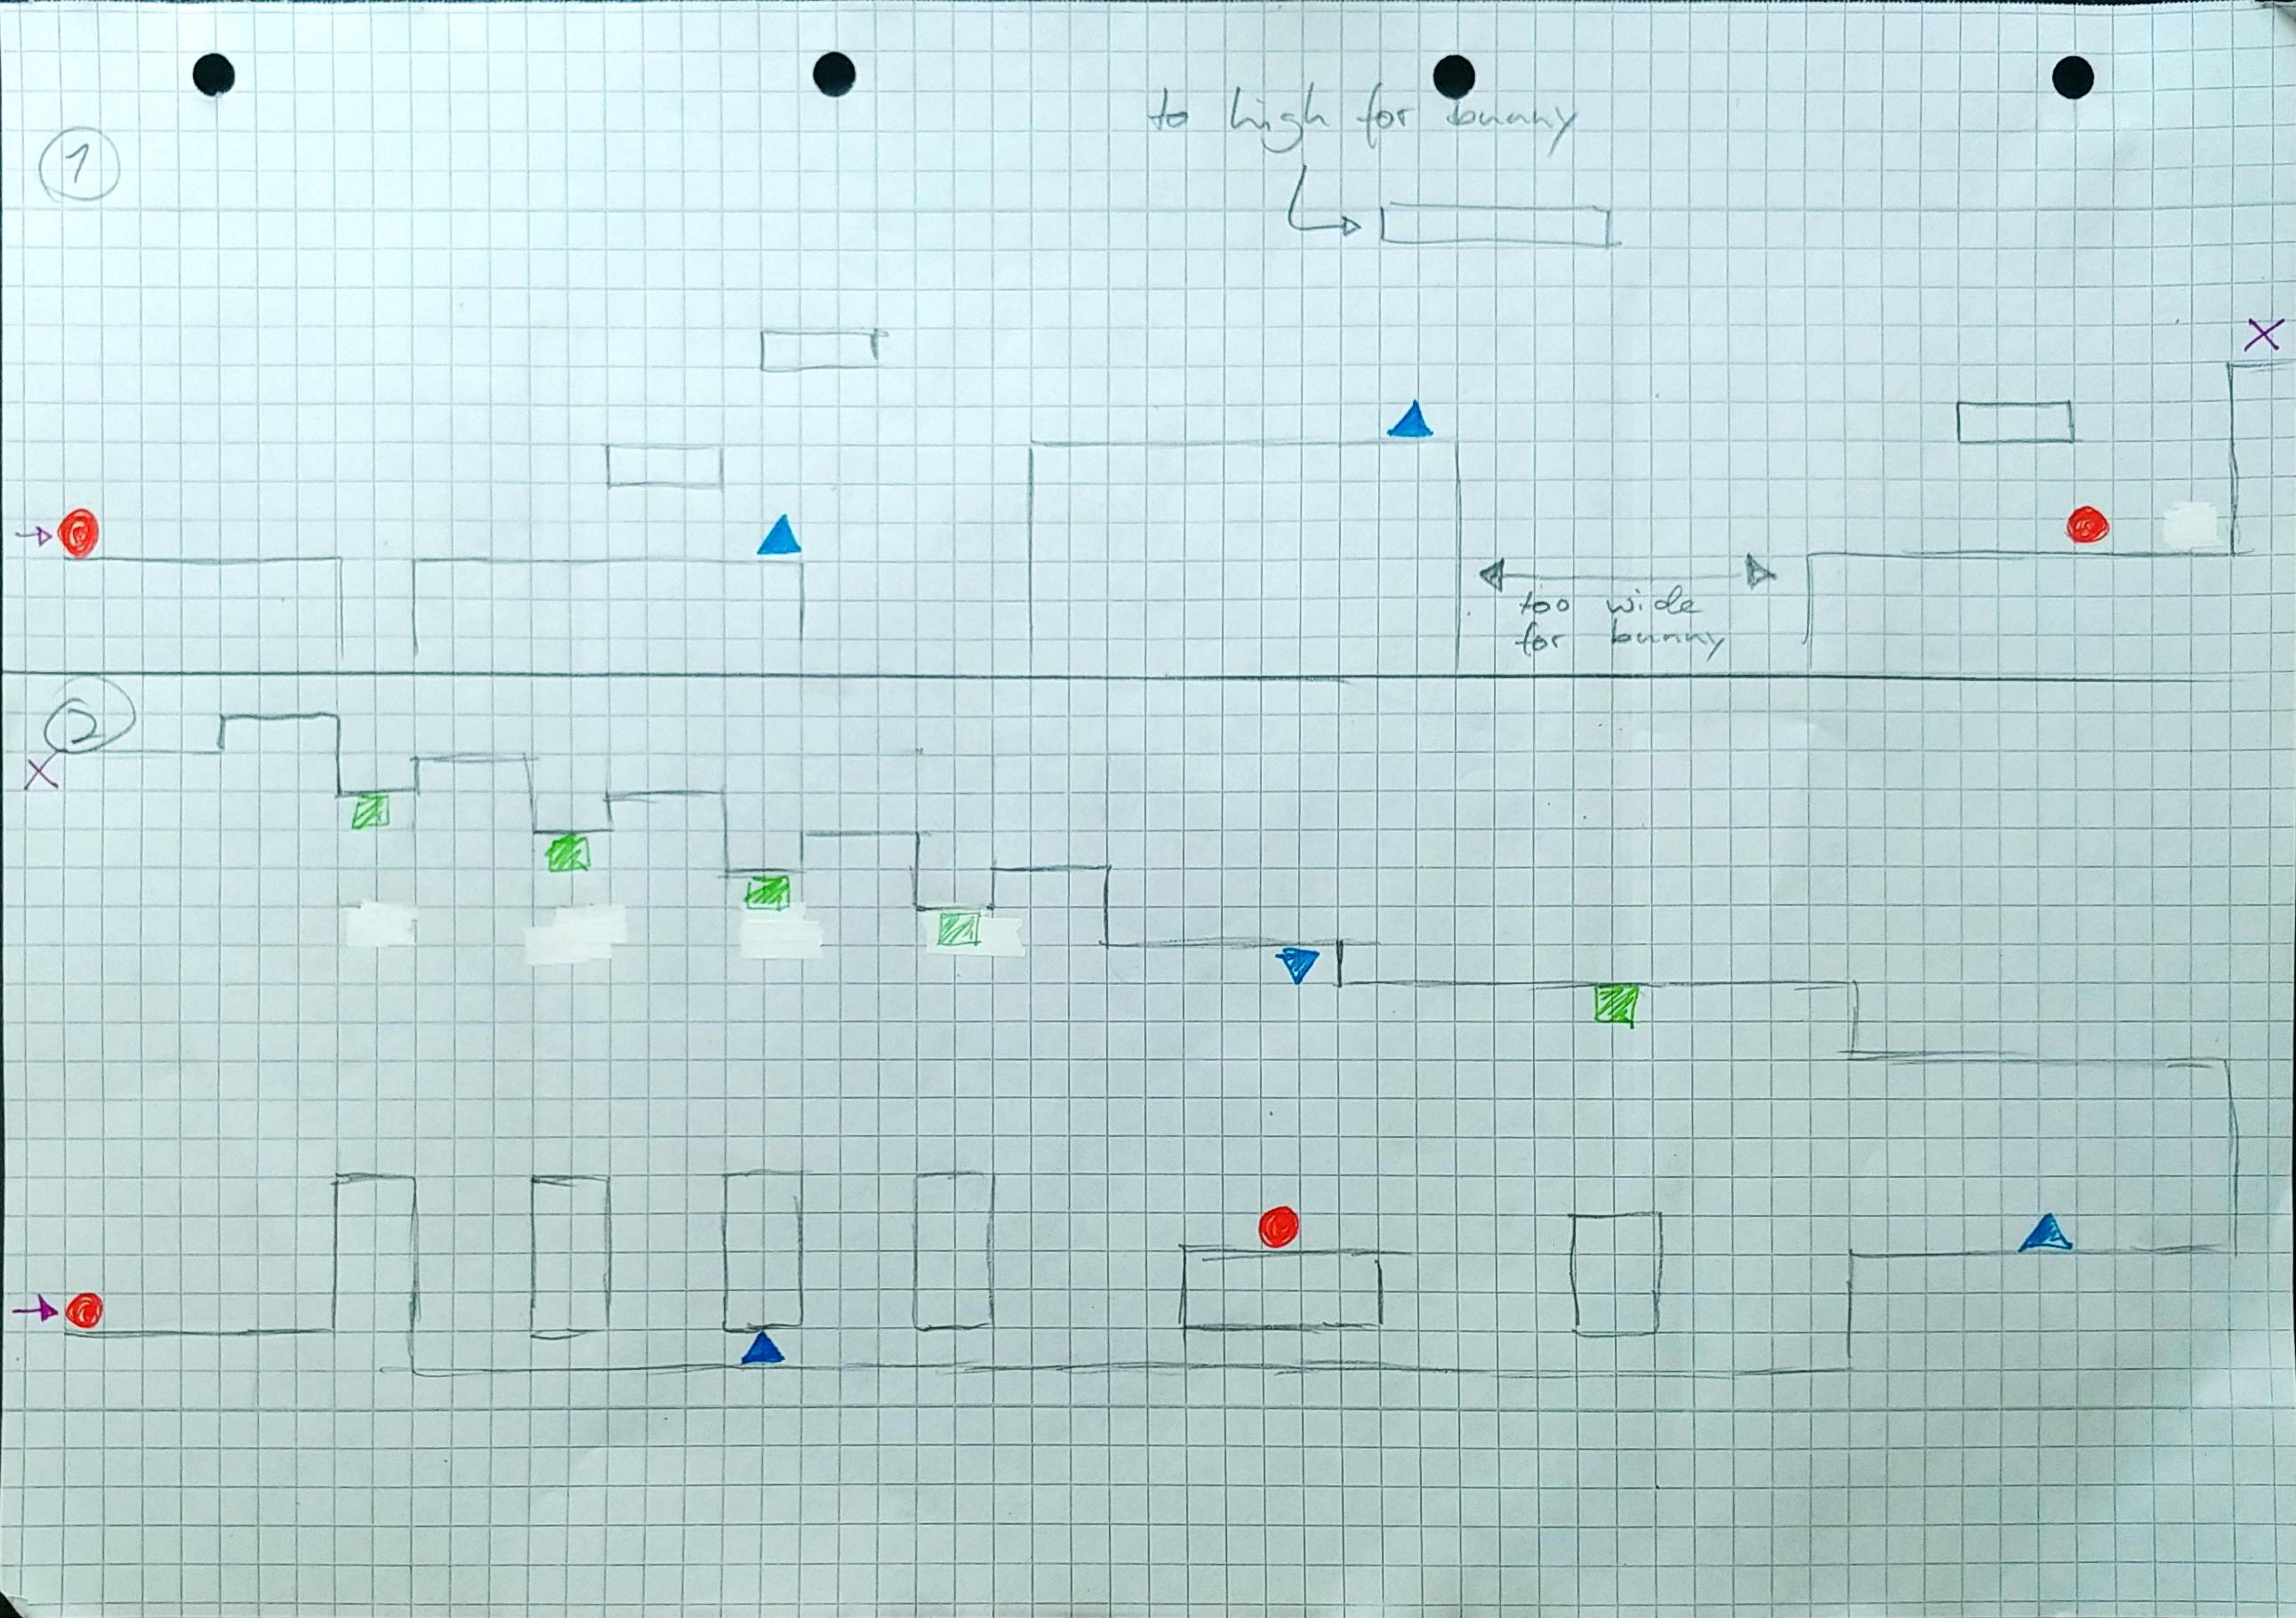 to high for bunny
1
too wide
for bunny
2